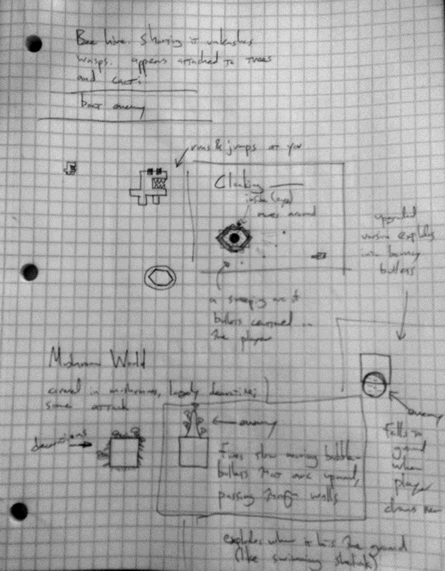 Bee hive. Shooting it unleashes
wasps. appears attached to trees
and cacti.
boat enemy
runs & jumps at you
Cloaking
inside (eye)
moves around
upgraded
version explodes
into
bullets
a sweeping arc of
bullets centered on
the player
Mushroom World
covered in mushrooms, largely decorative,
some attack
decorations
enemy
enemy
Fires slow moving bubble
bullets that arc upward,
passing through walls
Falls to
ground
when
player
draws near
explodes when it hits the ground
(like swimming